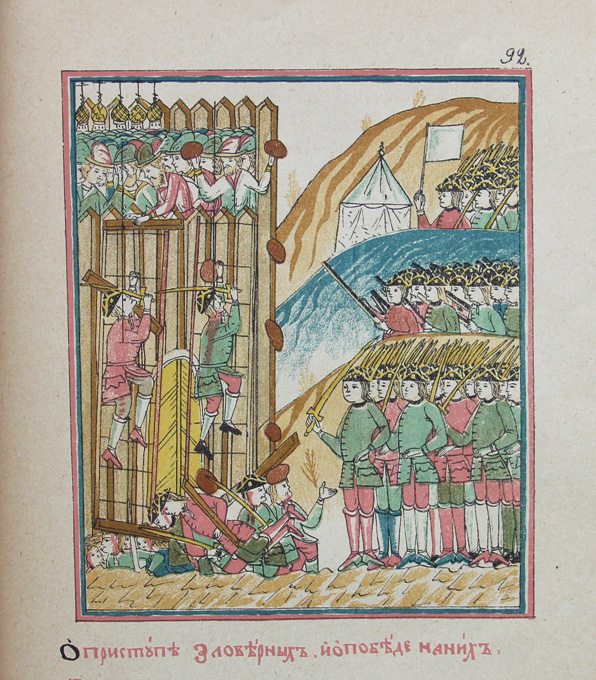 92.
О҆ присту́пѣ зловѣ́рныхъ. и҆ ѻ҆ побѣ́де нани́хъ.